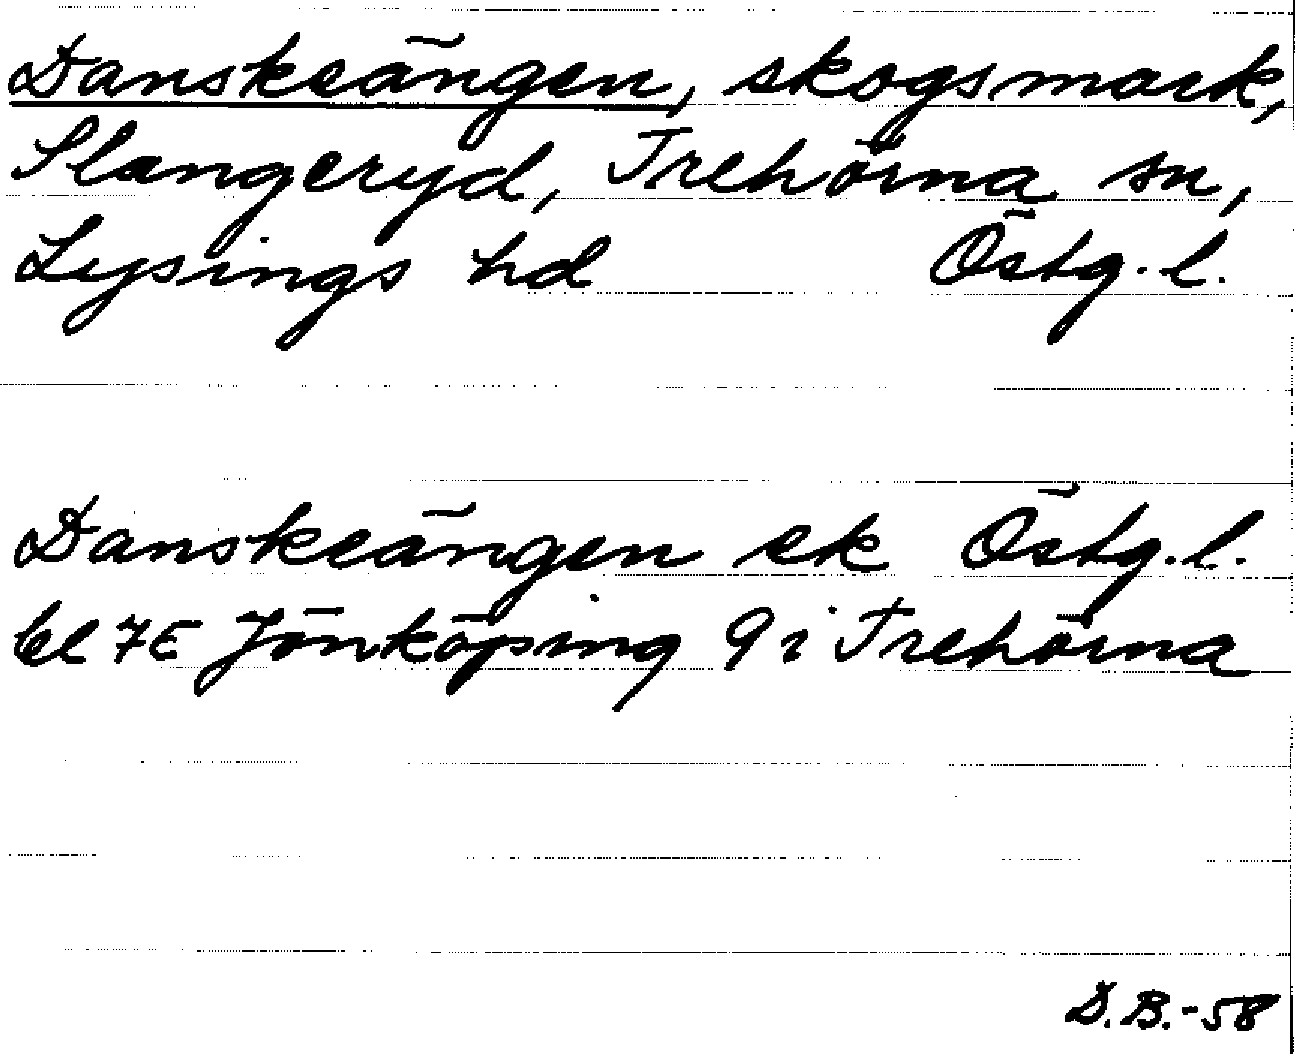 Danskeängen, skogsmark,
Slangeryd, Trehörna sn,
Lysings hd Östg. l.
Danskeängen ek Östg. l.
bl 7E Jönköping 9 i Trehörna
D.B.-58